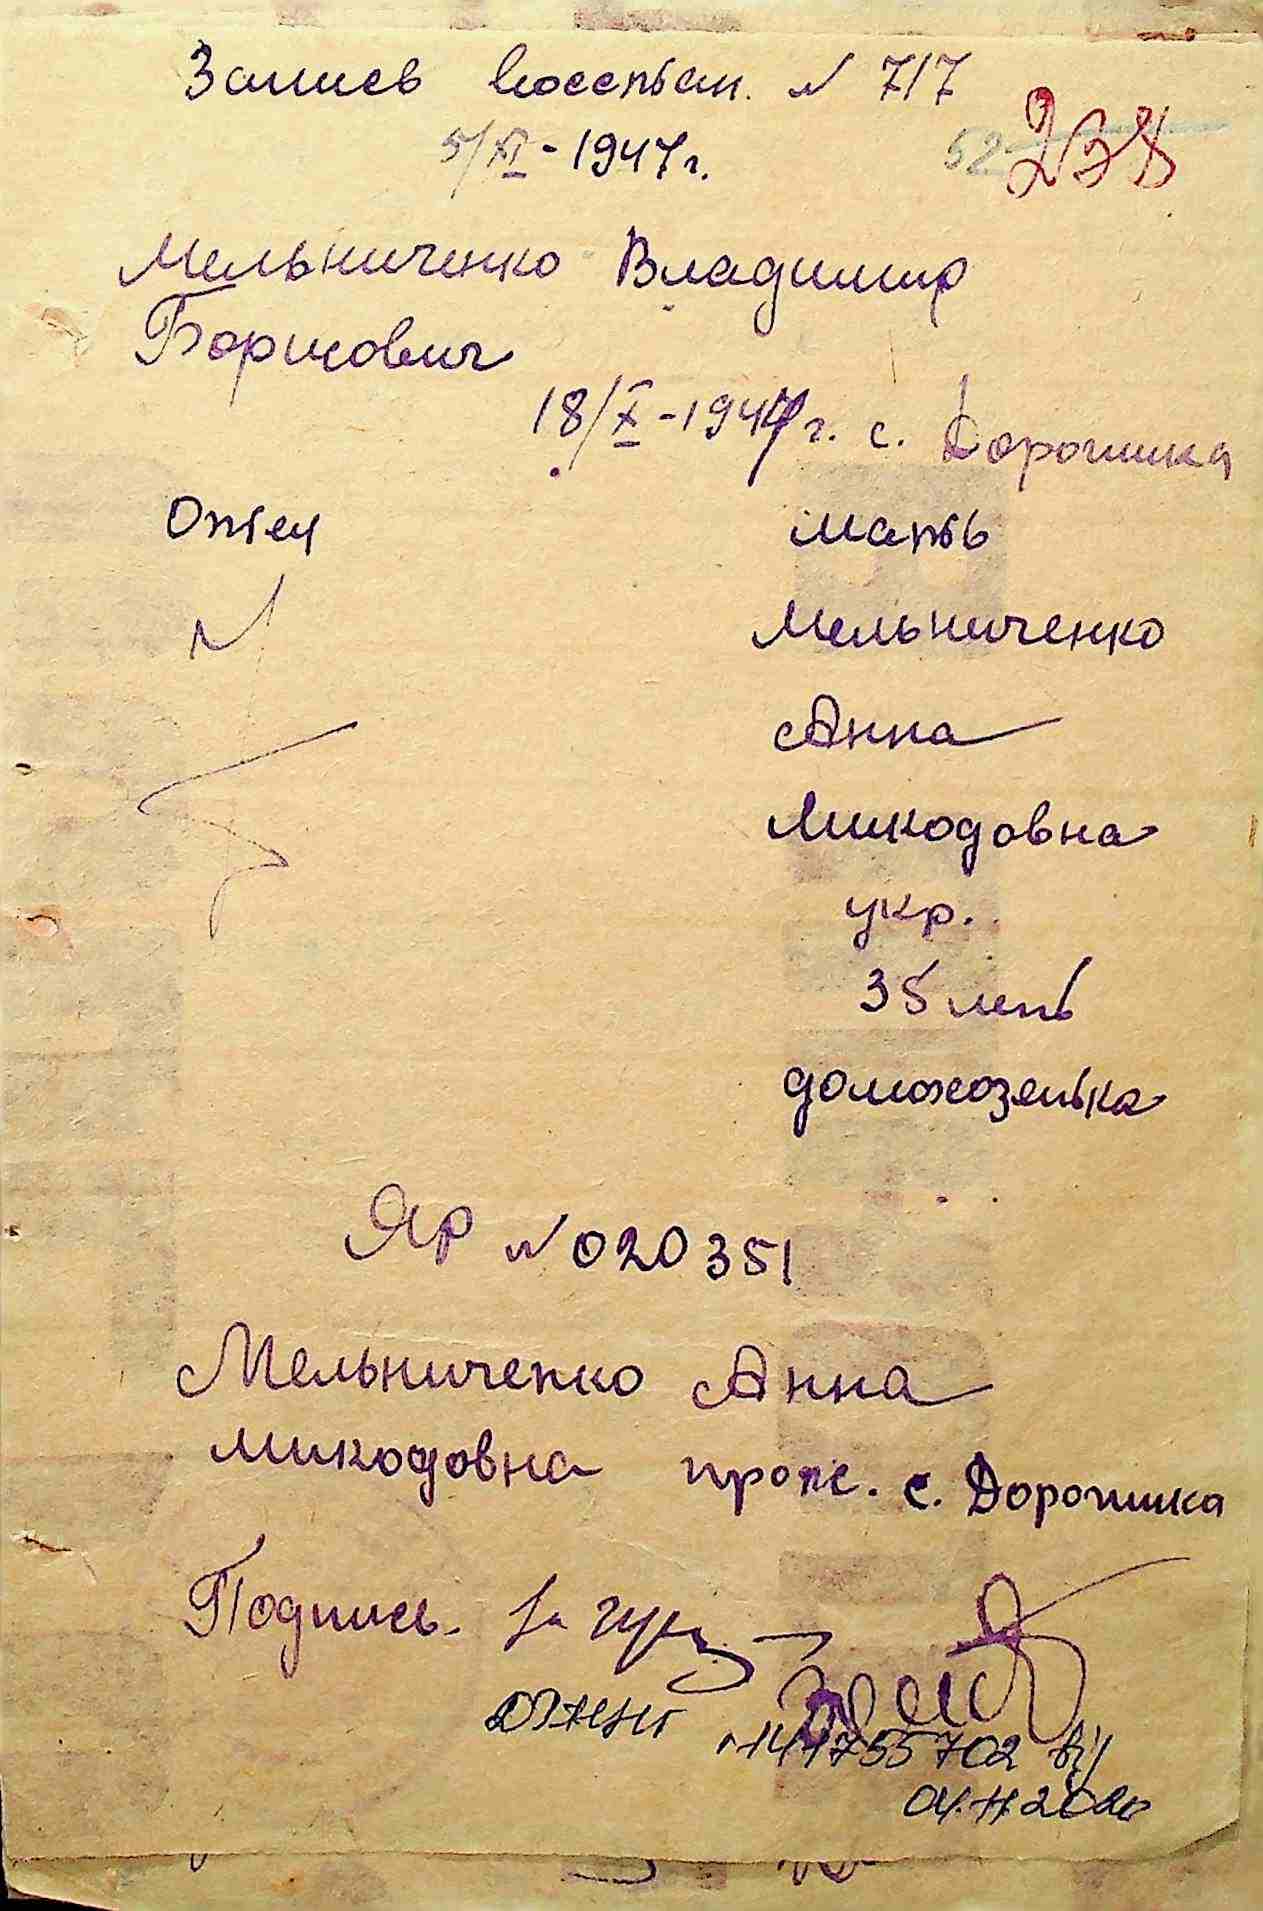 Запись восстан. N 717
5/XI - 1947г.
52 238
Мельниченко Владимир
Борисович
18/X - 1947г. с. Дорогинка
Отец мать
Мельниченко
Анна
Микодовна
укр.
35 лет
домохозяйка
ЯР N 020351
Мельниченко Анна
Микодовна прож. с. Дорогинка
Подпись.
04.11.2020